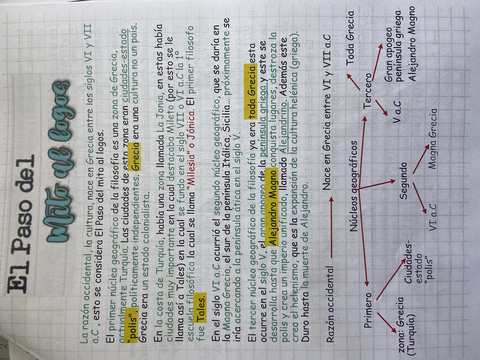 El Paso del
Mito al logos
La razón occidental, la cultura, nace en Grecia entre los siglos VI y VII
a.C, esto se considera El Paso del mito al logos.
El primer núcleo geográfico de la filosofía es una zona de Grecia,
actualmente Turquía. Las ciudades de esta zona eran ciudades-estado
"polis", políticamente independientes, Grecia era una cultura no un país,
Grecia era un estado colonialista.
En la costa de Turquía, había una zona llamada La Jonia, en estas había
ciudades muy importantes en la cual destacaba Mileto (por esto se le
llama así a Tales) en la cual se fundo en el siglo VII o VI a.C la 1º
escuela filosófica la cual se llama "Milesia" o Jónica. El primer filosofo
fue Tales.
En el siglo VI a.C ocurrió el segundo núcleo geográfico, que se daría en
la Magna Grecia, el sur de la península Itálica, Sicilia... próximamente se
iría acercando a la península ática en el siglo V.
El tercer núcleo geográfico de la filosofía ya era toda Grecia esta
ocurre en el siglo V, el gran apogeo de la península griega y este se
desarrolla hasta que Alejandro Magno conquista lugares, destroza la
polis y crea un imperio unificado, llamado Alejandrino. Además este
creo el helenismo, que es la expansión de la cultura helénica (griega).
Dura hasta la muerte de Alejandro.
Razón occidental
Nace en Grecia entre VI y VII a.C
Núcleos geográficos
Primero
Segundo
Tercero
zona: Grecia
(Turquía)
Ciudades-
estado
"polis"
VI a.C
Magna Grecia
V a.C
Gran apogeo
península griega
Alejandro Magno
Toda Grecia